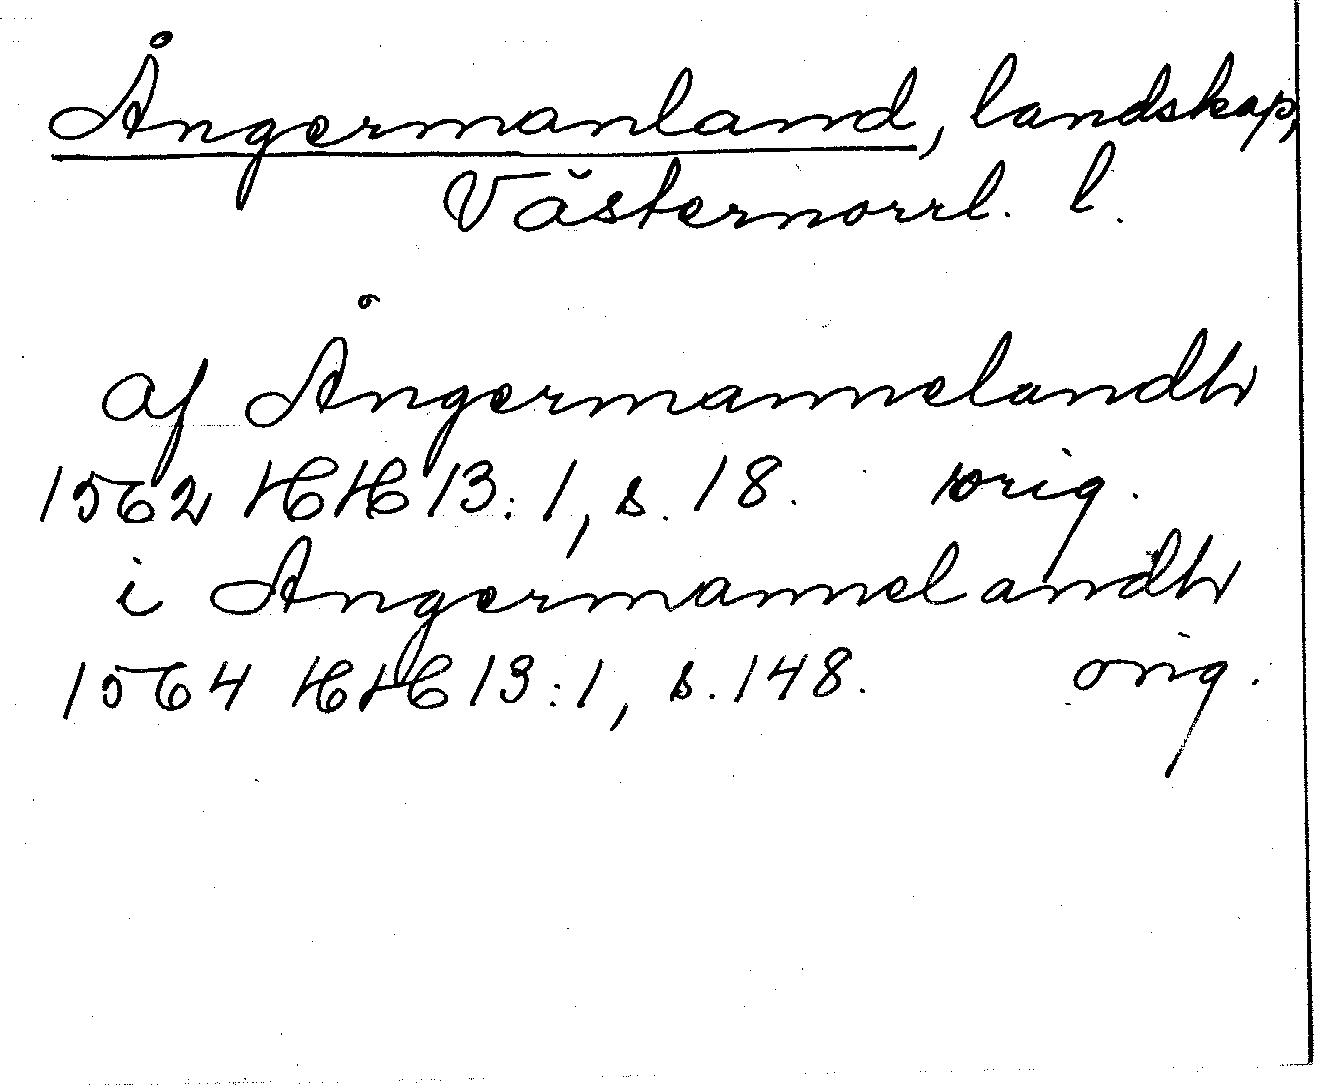 Ångermanland, landskap,
Västernorrl. l.
af Ångermannelandh
1562 HH 13:1, s. 18. orig.
i Angermannelandh
1564 HH 13:1, s. 148. orig.